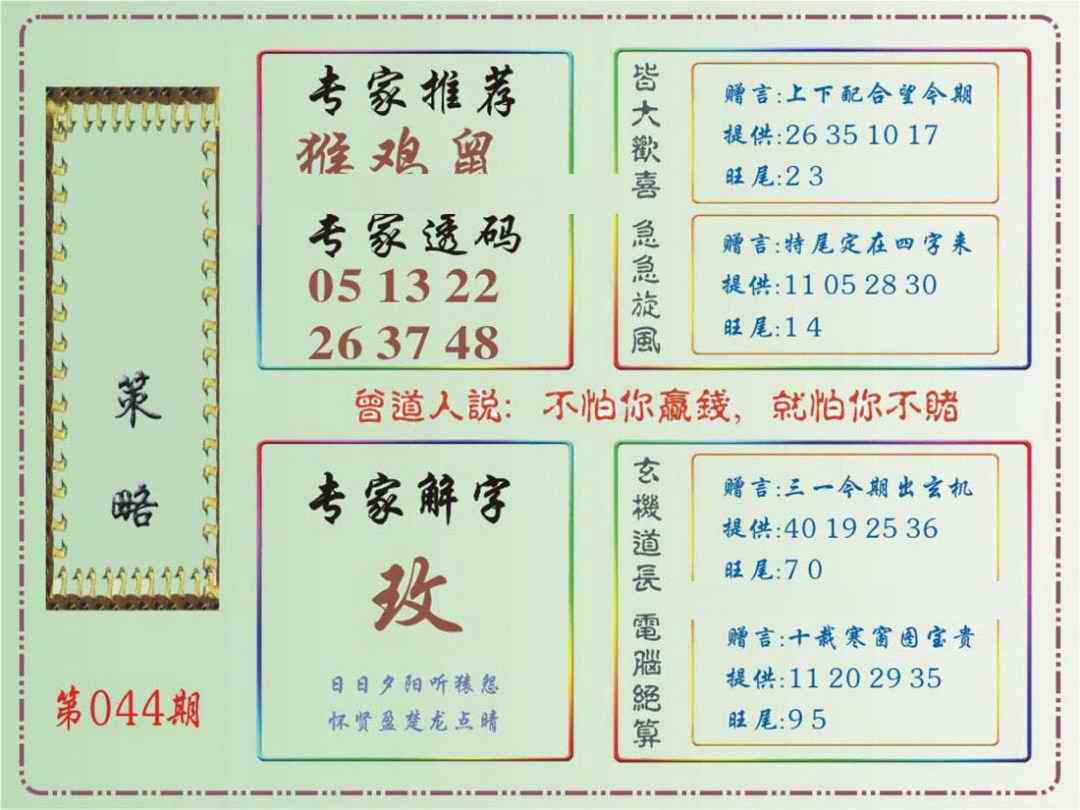 策略
第044期
专家推荐
猴鸡鼠
专家透码
05 13 22
26 37 48
皆大歡喜
赠言:上下配合望今期
提供:26 35 10 17
旺尾:2 3
急急旋风
赠言:特尾定在四字来
提供:11 05 28 30
旺尾:1 4
曾道人説: 不怕你贏錢, 就怕你不賭
专家解字
玫
日日夕阳听猿怨
怀贤盈楚龙点晴
玄機道長
赠言:三一今期出玄机
提供:40 19 25 36
旺尾:7 0
電腦絕算
赠言:十载寒窗图宝贵
提供:11 20 29 35
旺尾:9 5